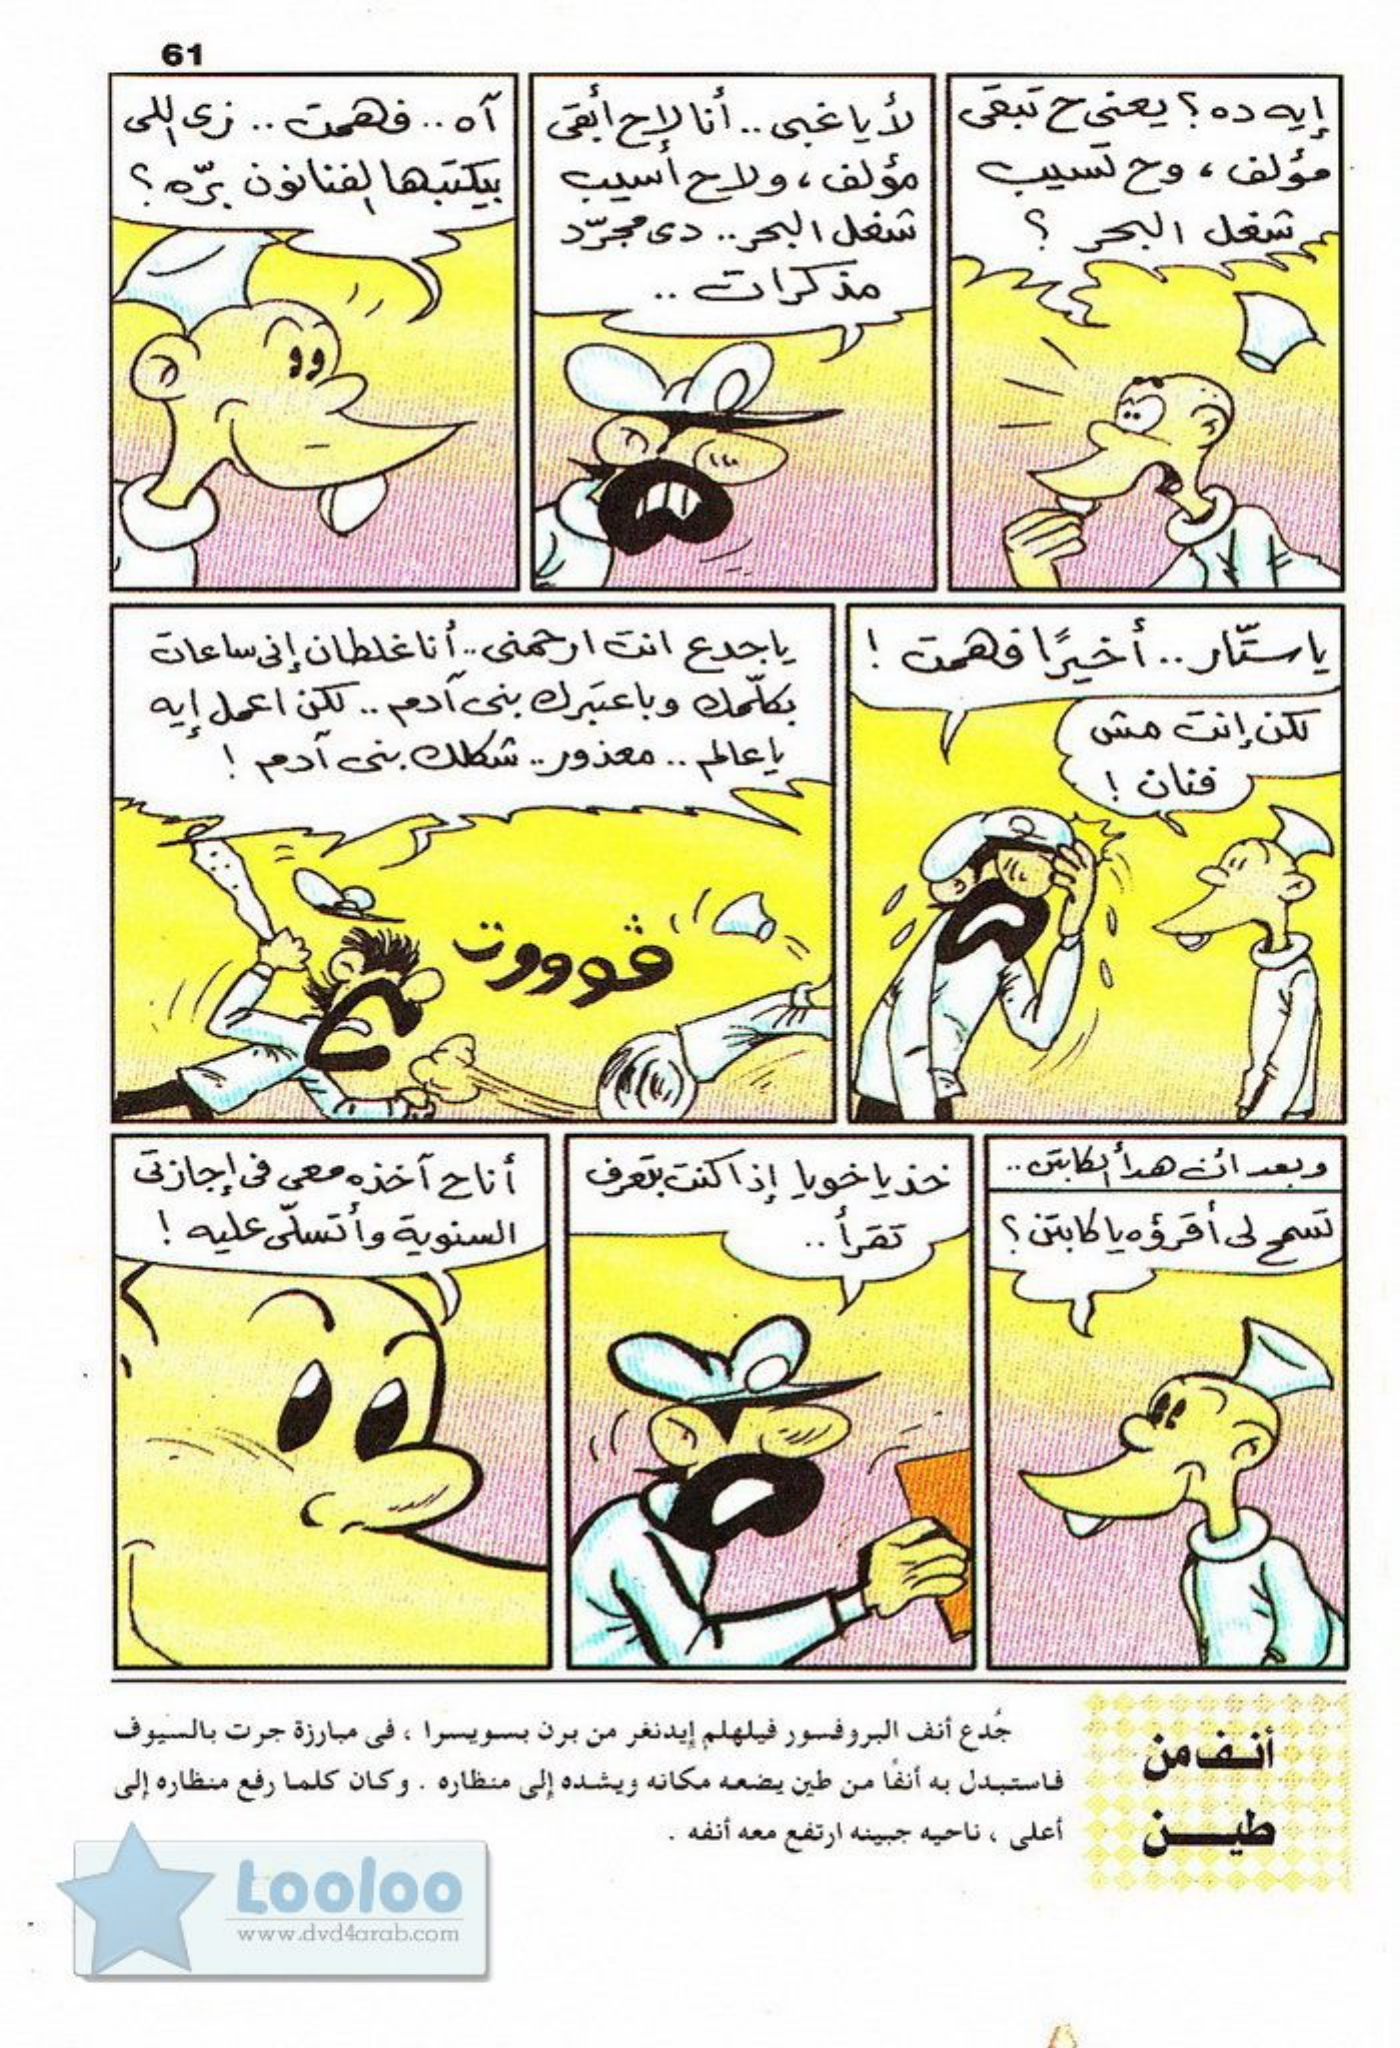 61
إيه ده؟ يعنى ح تبقى
مؤلف، وح تسيب
شغل البحر؟
لأ يا غبى.. أنا لا ح أبقى
مؤلف، ولا ح أسيب
شغل البحر.. دى مجرّد
مذكرات..
آه.. فهمت.. زى اللى
بيكتبها الفنانون برّه؟
يا ستّار.. أخيرًا فهمت!
لكن إنت مش
فنان!
يا جدع انت ارحمنى.. أنا غلطان إنى ساعات
بكلّمك وباعتبرك بنى آدم.. لكن اعمل إيه
يا عالم.. معذور.. شكلك بنى آدم!
ڤوووت
وبعد أن هدأ الكابتن..
تسمح لى أقرؤه يا كابتن؟
خد يا خويا إذا كنت بتعرف
تقرأ..
أنا ح آخذه معى فى إجازتى
السنوية وأتسلّى عليه!
أنف من
طين
جُدع أنف البروفسور فيلهلم إيدنغر من برن بسويسرا، فى مبارزة جرت بالسيوف
فاستبدل به أنفًا من طين يضعه مكانه ويشده إلى منظاره. وكان كلما رفع منظاره إلى
أعلى، ناحيه جبينه ارتفع معه أنفه.
Looloo
www.dvd4arab.com